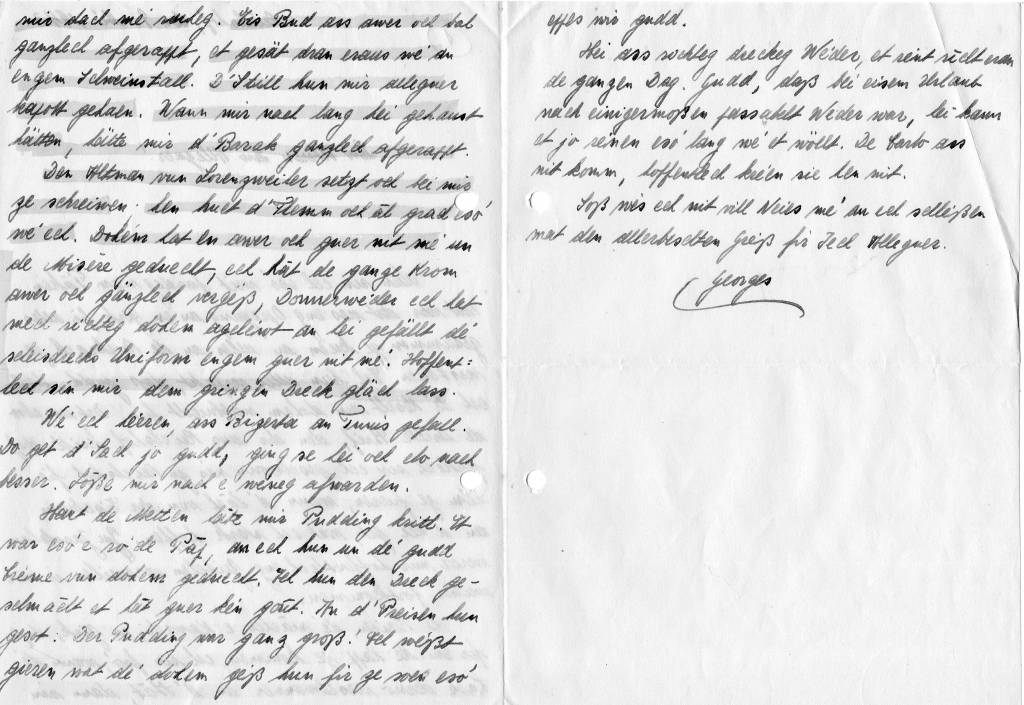 mir dach mé roueg. Eis Bud ass awer och bal
gänzlech ofgerafft, et gesäit dran eraus wé an
engem Schweinstall. D'Still hun mir alleguer
kapott gehaen. Wann mir nach lang hei gehaust
hätten, hätte mir d'Barak gänzlech ofgerafft.
Den Altman vun Lorenzweiler setzt och bei mir
ze schreiwen. Hen huet d'Flemm och ät grad esó
wé ech. Dohém hat en awer och guer nit mé un
de Misère geduecht, ech hät de ganze Krom
awer och gänzlech vergéß, Donnerwéder ech hat
mech richteg dohém ageliewt an hei gefällt dé
scheisdrecks Uniform engem guer nit mé. Hoffent=
lech sin mir dem gringen Dreck gläch lass.
Wé ech héeren, ass Bizerta an Tunis gefall.
Do get d'Sach jo gudd, ging se hei och elo nach
besser. Löße mir nach e weneg ofwarden.
Haut de Metten hätte mir Pudding kritt. Et
war esó e ró'de Päp, an ech hun un dé gudd
Creme vun dohém geduecht. Ech hun den Dreck ge-
schmächt et hät guer kén goût. An d'Preisen hun
gesot: Der Pudding war ganz groß! Ech wéßt
gieren wat dé dohém géß hun fir ze soen esó
eppes wir gudd.
Hei ass richteg dreckeg Wéder, et reint riicht eran
de ganzen Dag. Gudd, daß bei eisem Urlaub
nach einigermoßen fassabelt Wéder war, hei kann
et jo reenen esó lang wé et wöllt. De Carlo ass
nit komm, hoffentlech kréen sie hen nit.
Soß wés ech nit vill Neies mé an ech schléißen
mat den allerbeschten Gréiß fir Iech Alleguer.
Georges